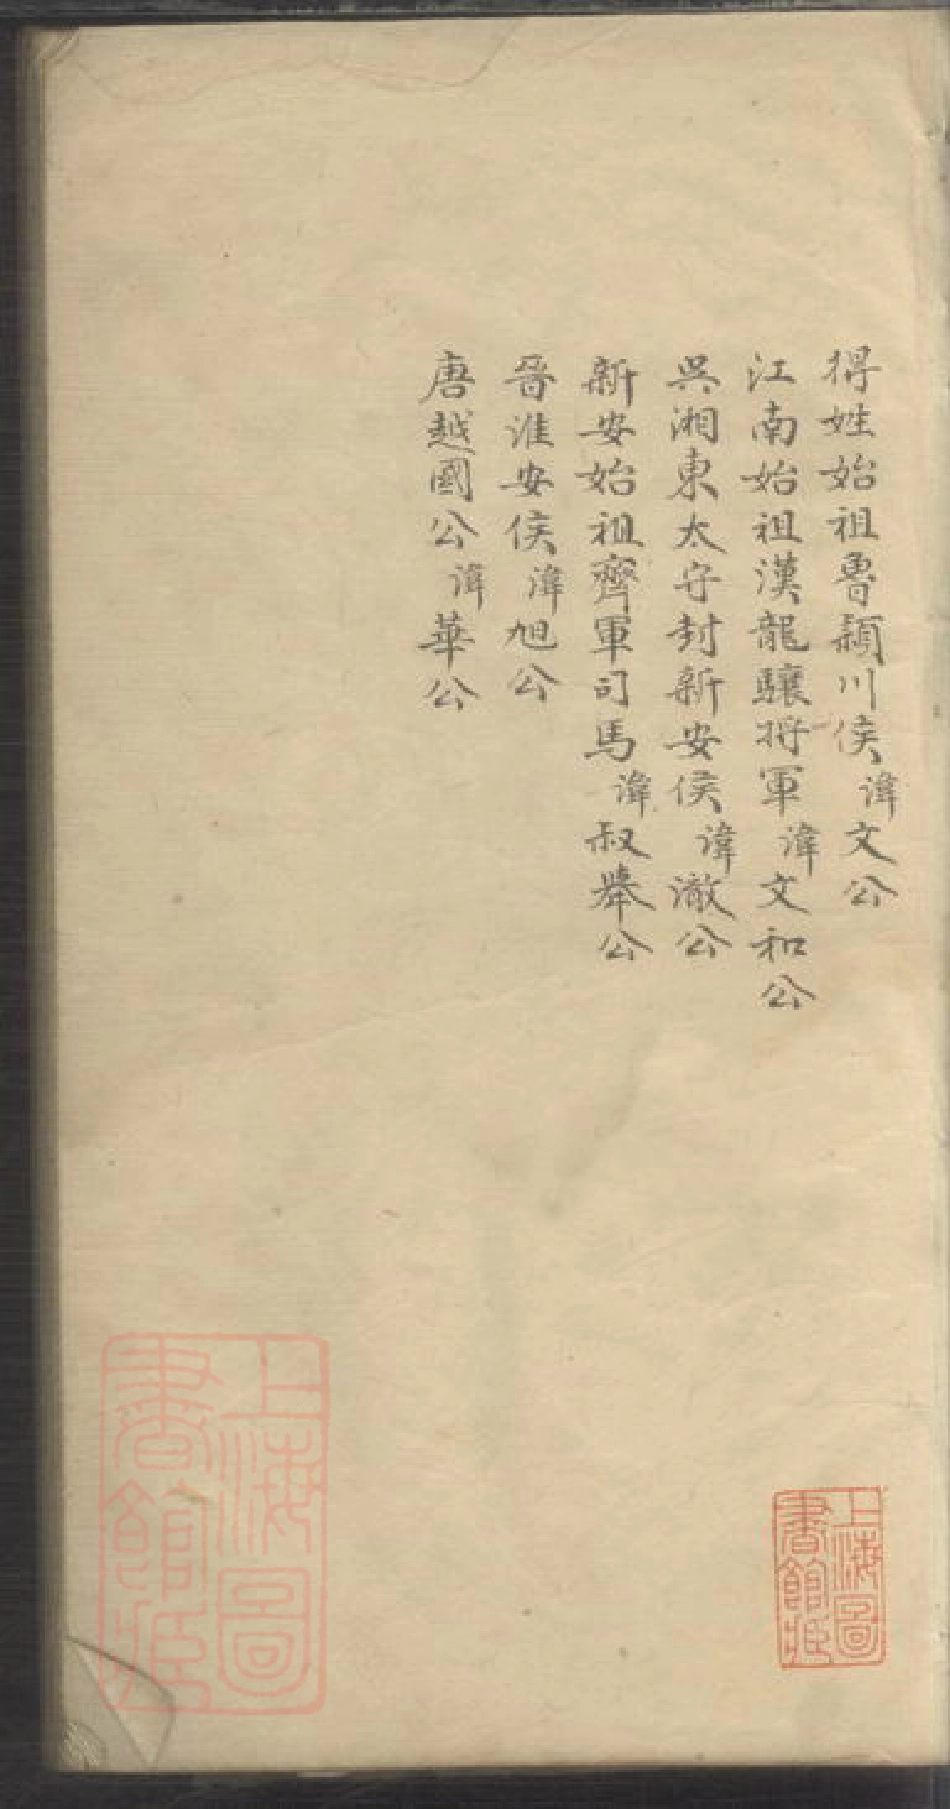 得姓始祖魯潁川侯諱文公
江南始祖漢龍驤将軍諱文和公
吳湘東太守封新安侯諱澈公
新安始祖齊軍司馬諱叔舉公
晉淮安侯諱旭公
唐越國公諱華公
上海圖
書館藏
上海圖
書館藏